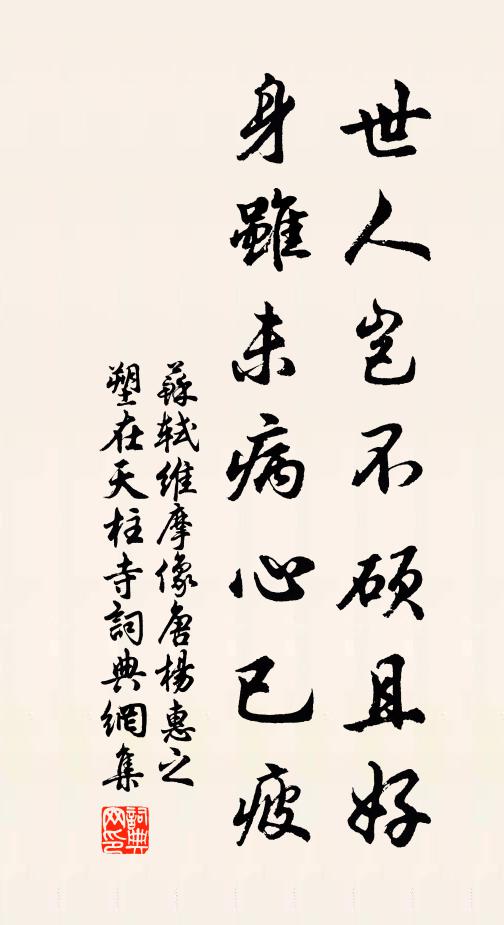 世人岂不硕且好
身雖未病心已疲
蘇軾維摩像唐楊惠之
塑在天柱寺詞典網集
詞典網印